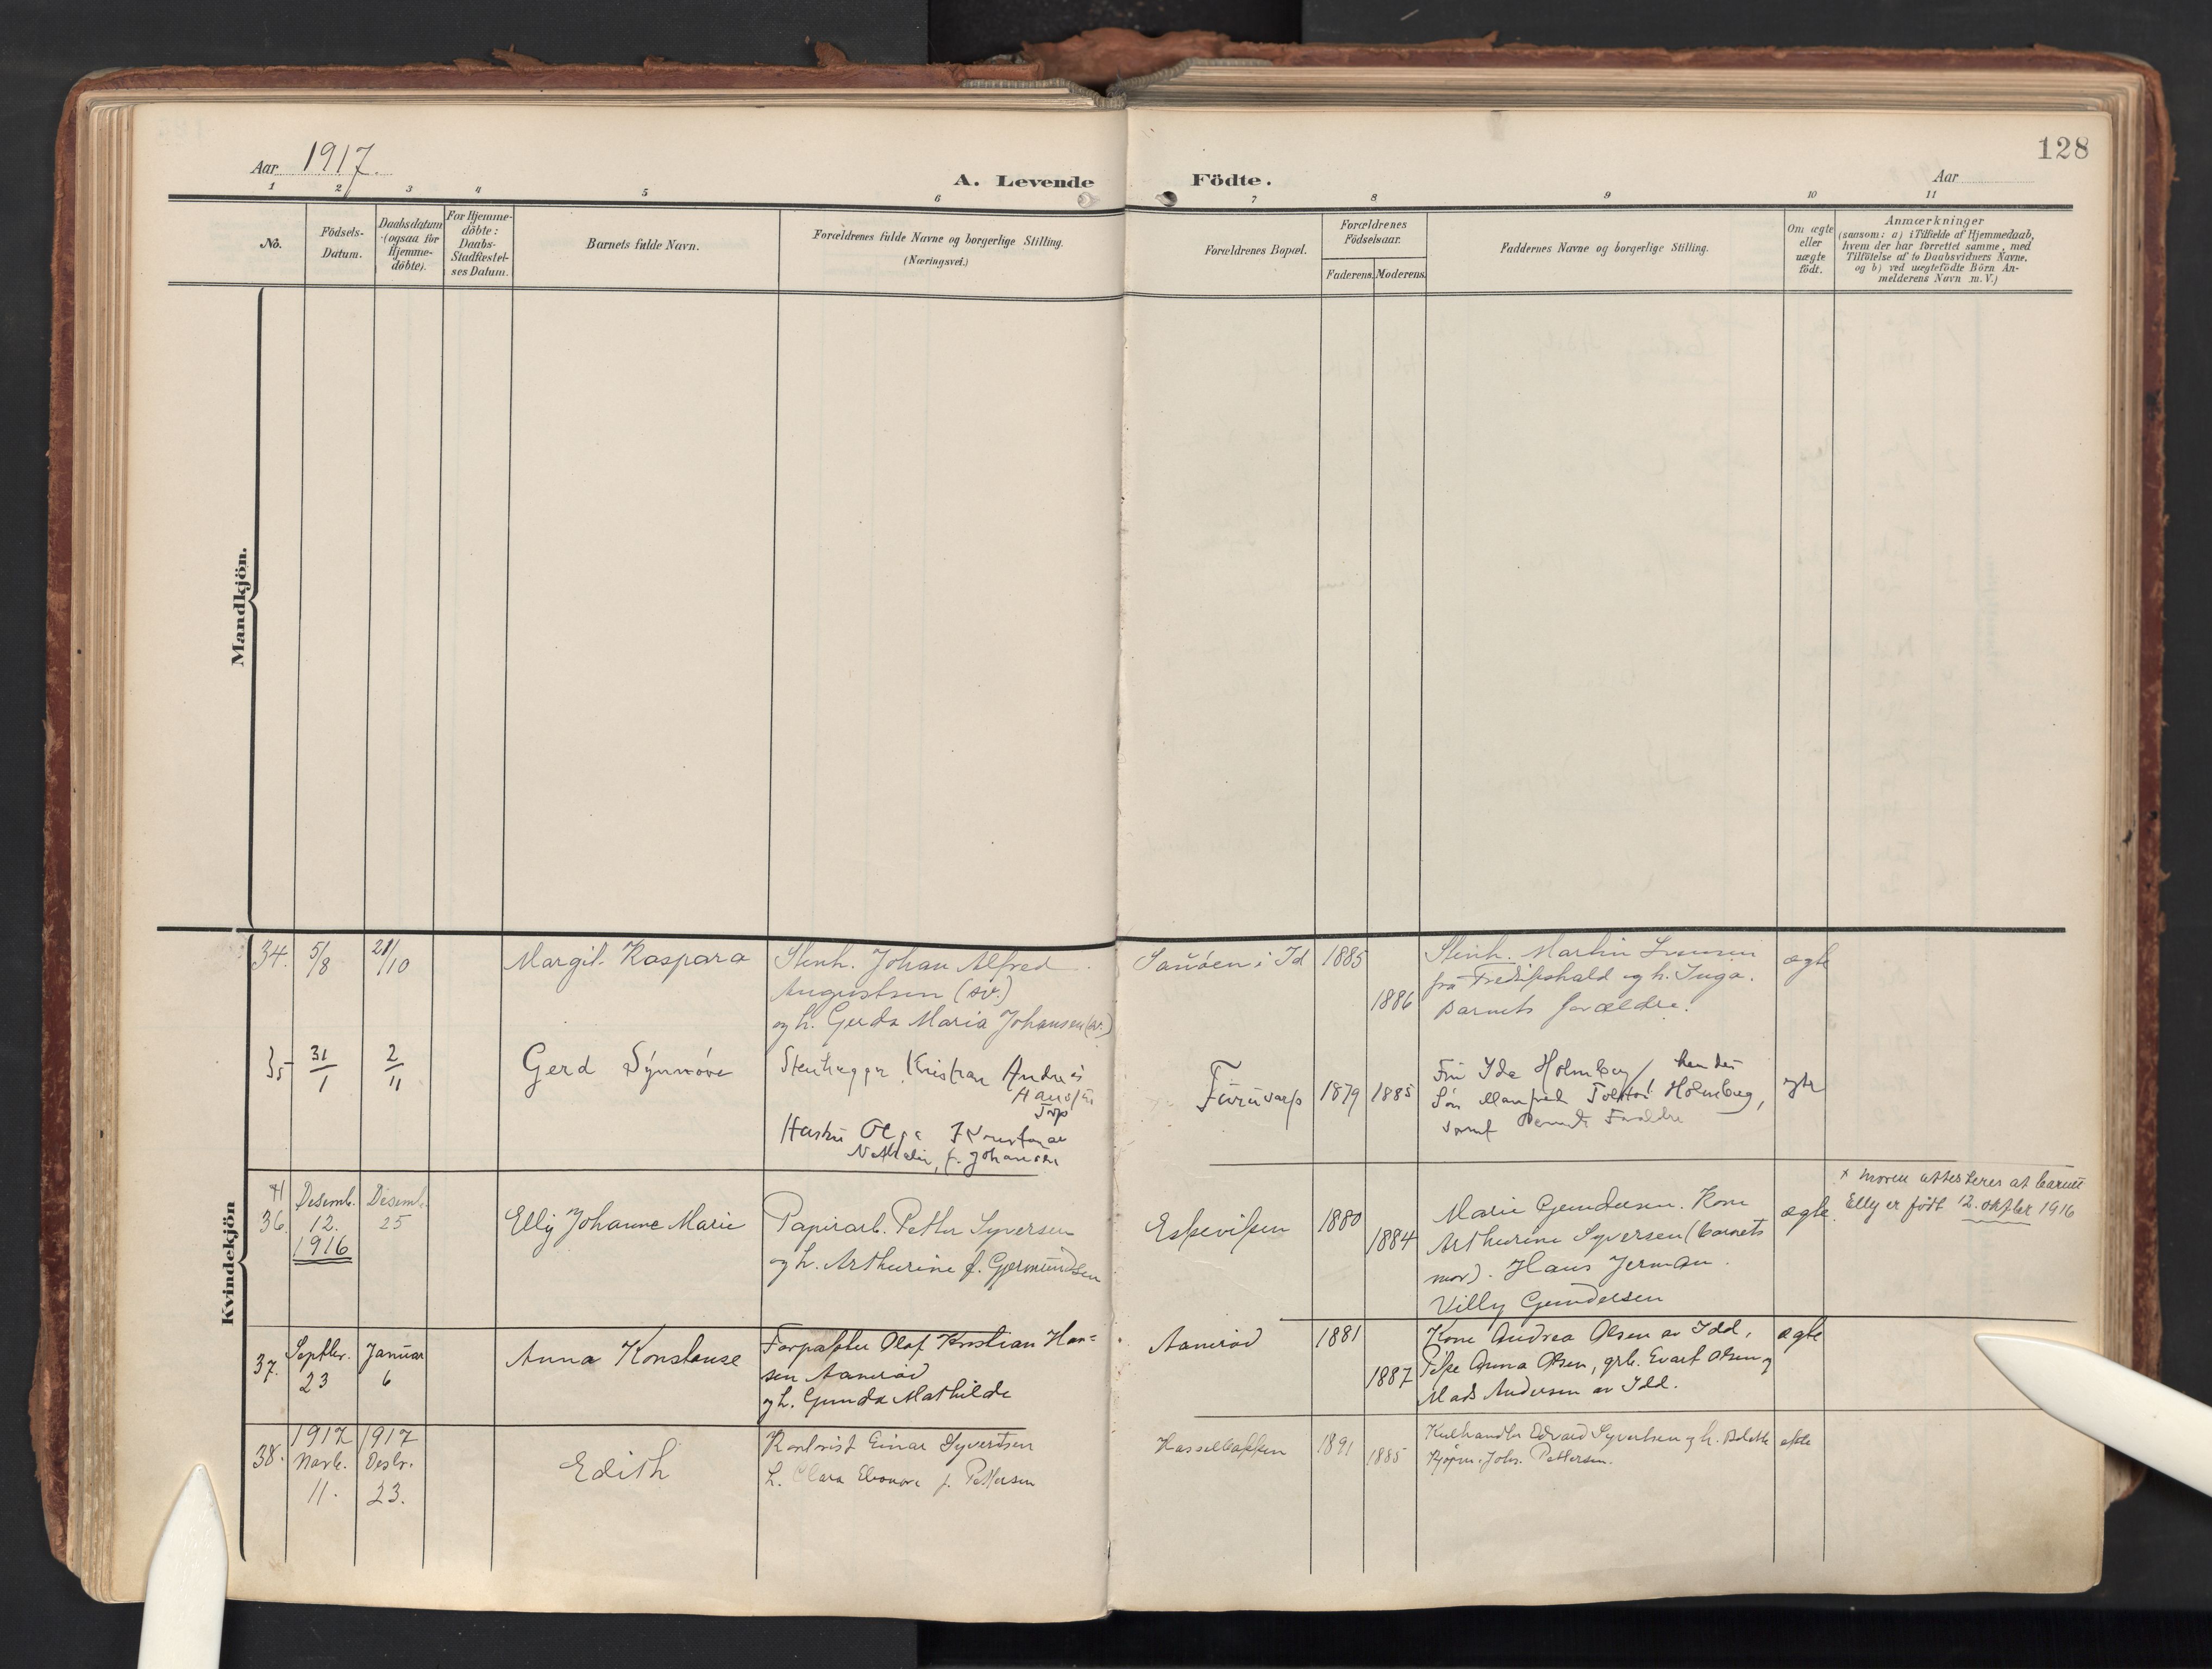 Aar 1917.
A. Levende Födte.
128
Aar
1 2 3 4 5 6 7 8 9 10 11
No.
Födsels-
Datum.
Daabsdatum
(ogsaa for
Hjemme-
döbte).
For Hjemme-
döbte:
Daabs-
Stadfæstel-
ses Datum.
Barnets fulde Navn.
Forældrenes fulde Navne og borgerlige Stilling.
(Næringsvei.)
Forældrenes Bopæl.
Forældrenes
Födselsaar.
Faderens. Moderens.
Faddernes Navne og borgerlige Stilling.
Om ægte
eller
uægte
født.
Anmærkninger
(saasom: a) i Tilfælde af Hjemmedaab,
hvem der har forrettet samme, med
Tilföielse af to Daabsvidners Navne,
og b) ved uægtefödte Börn An-
melderens Navn m. V.)
Mandkjön.
Kvindekjön
34.
5/8
21/10
Margit Kaspara
Stenh. Johan Alfred
Augustsen (sv.)
og h. Gerda Maria Johansen (sv.)
i Id
1885
1886
Stenh. Martin
fra Fredrikshald og h. Inga.
Barnets forældre.
ægte
35
31/1
2/11
Gerd Synnøve
Stenhugger Kristian Andreas
Hansen
Torp
Hustru Olga
f. Johansen
Furuvarp
1879
1885
Fru Ida Holmberg, hendes
Søn Manfred Holmberg,
samt Barnets Forældre
36.
Desemb.
12.
1916
Desemb.
25
Elly Johanne Marie
Papirarb. Petter Syversen
og h. Arthurine f. Gjermundsen
Eskeviken
1880
1884
Marie Gundersen. Kone
Arthurine Syversen (barnets
mor). Hans Jerman.
Villy Gundersen
ægte.
x moren attesteres at barnet
Elly er født 12. oktber 1916
37.
Septbr.
23
Januar
6
Anna Konstanse
Forpakter Olaf Kristian Han-
sen Aanerød
og h. Gunda Mathilde
Aanerød
1881
1887
Kone Andrea Olsen av Idd,
Pike Anna Olsen, grb. Evart Olsen og
Mads Andersen av Idd.
ægte
38.
1917
Novb.
11.
1917
Desbr.
23.
Edith
Kontorist Einar Syvertsen
h. Clara Eleonore f. Pettersen
Hasselbakken
1891
1885
Kulhandler Edvard Syvertsen og h. Bolette
Kjøpm. Johs. Pettersen.